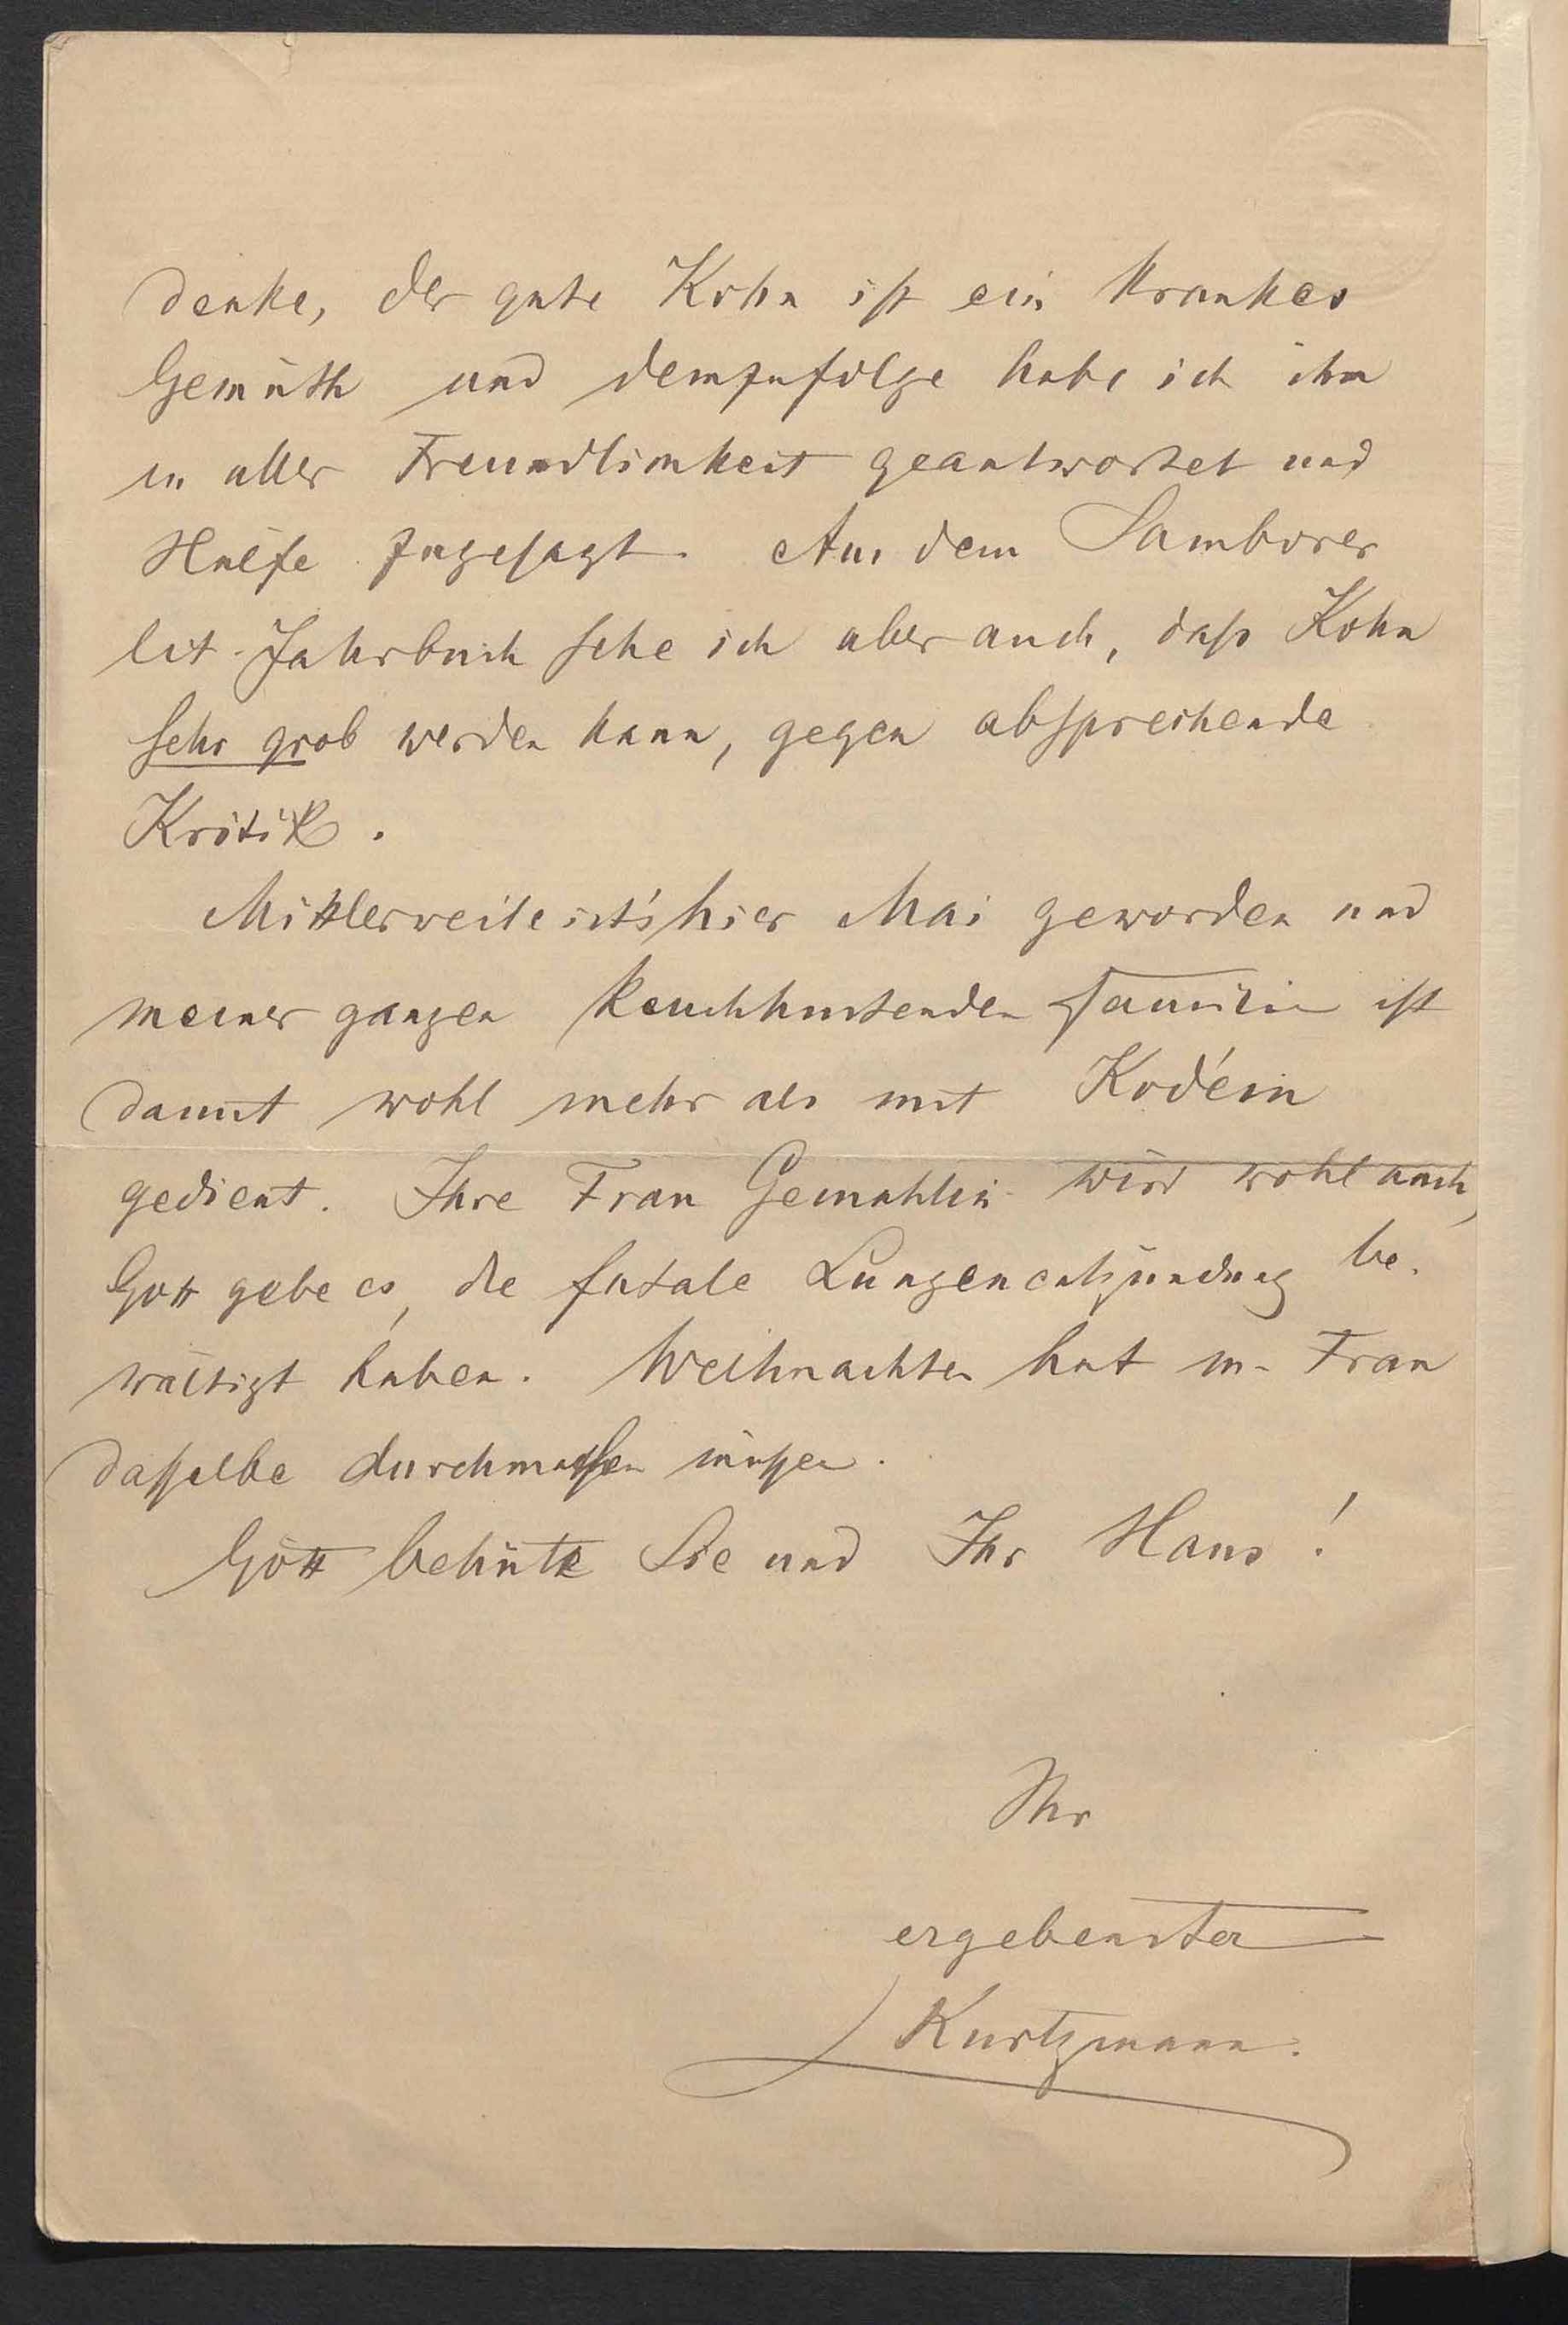 denke, der gute Kohn ist ein krankes
Gemüth und demzufolge habe ich ihm
in aller Freundlichkeit geantwortet und
Hülfe zugesagt. Aus dem Samborer
lit. Jahrbuch sehe ich aber auch, daß Kohn
sehr grob werden kann, gegen absprechende
Kritik.
Mittlerweile ist's hier Mai geworden und
meiner ganzen keuchhustenden Familie ist
damit wohl mehr als mit Kodéin
gedient. Ihre Frau Gemahlin wird wohl auch,
Gott gebe es, die fatale Lungenentzündung be-
wältigt haben. Weihnachten hat m. Frau
dasselbe durchmachen müssen.
Gott behüte Sie und Ihr Haus!
Ihr
ergebenster
Kurtzmann.